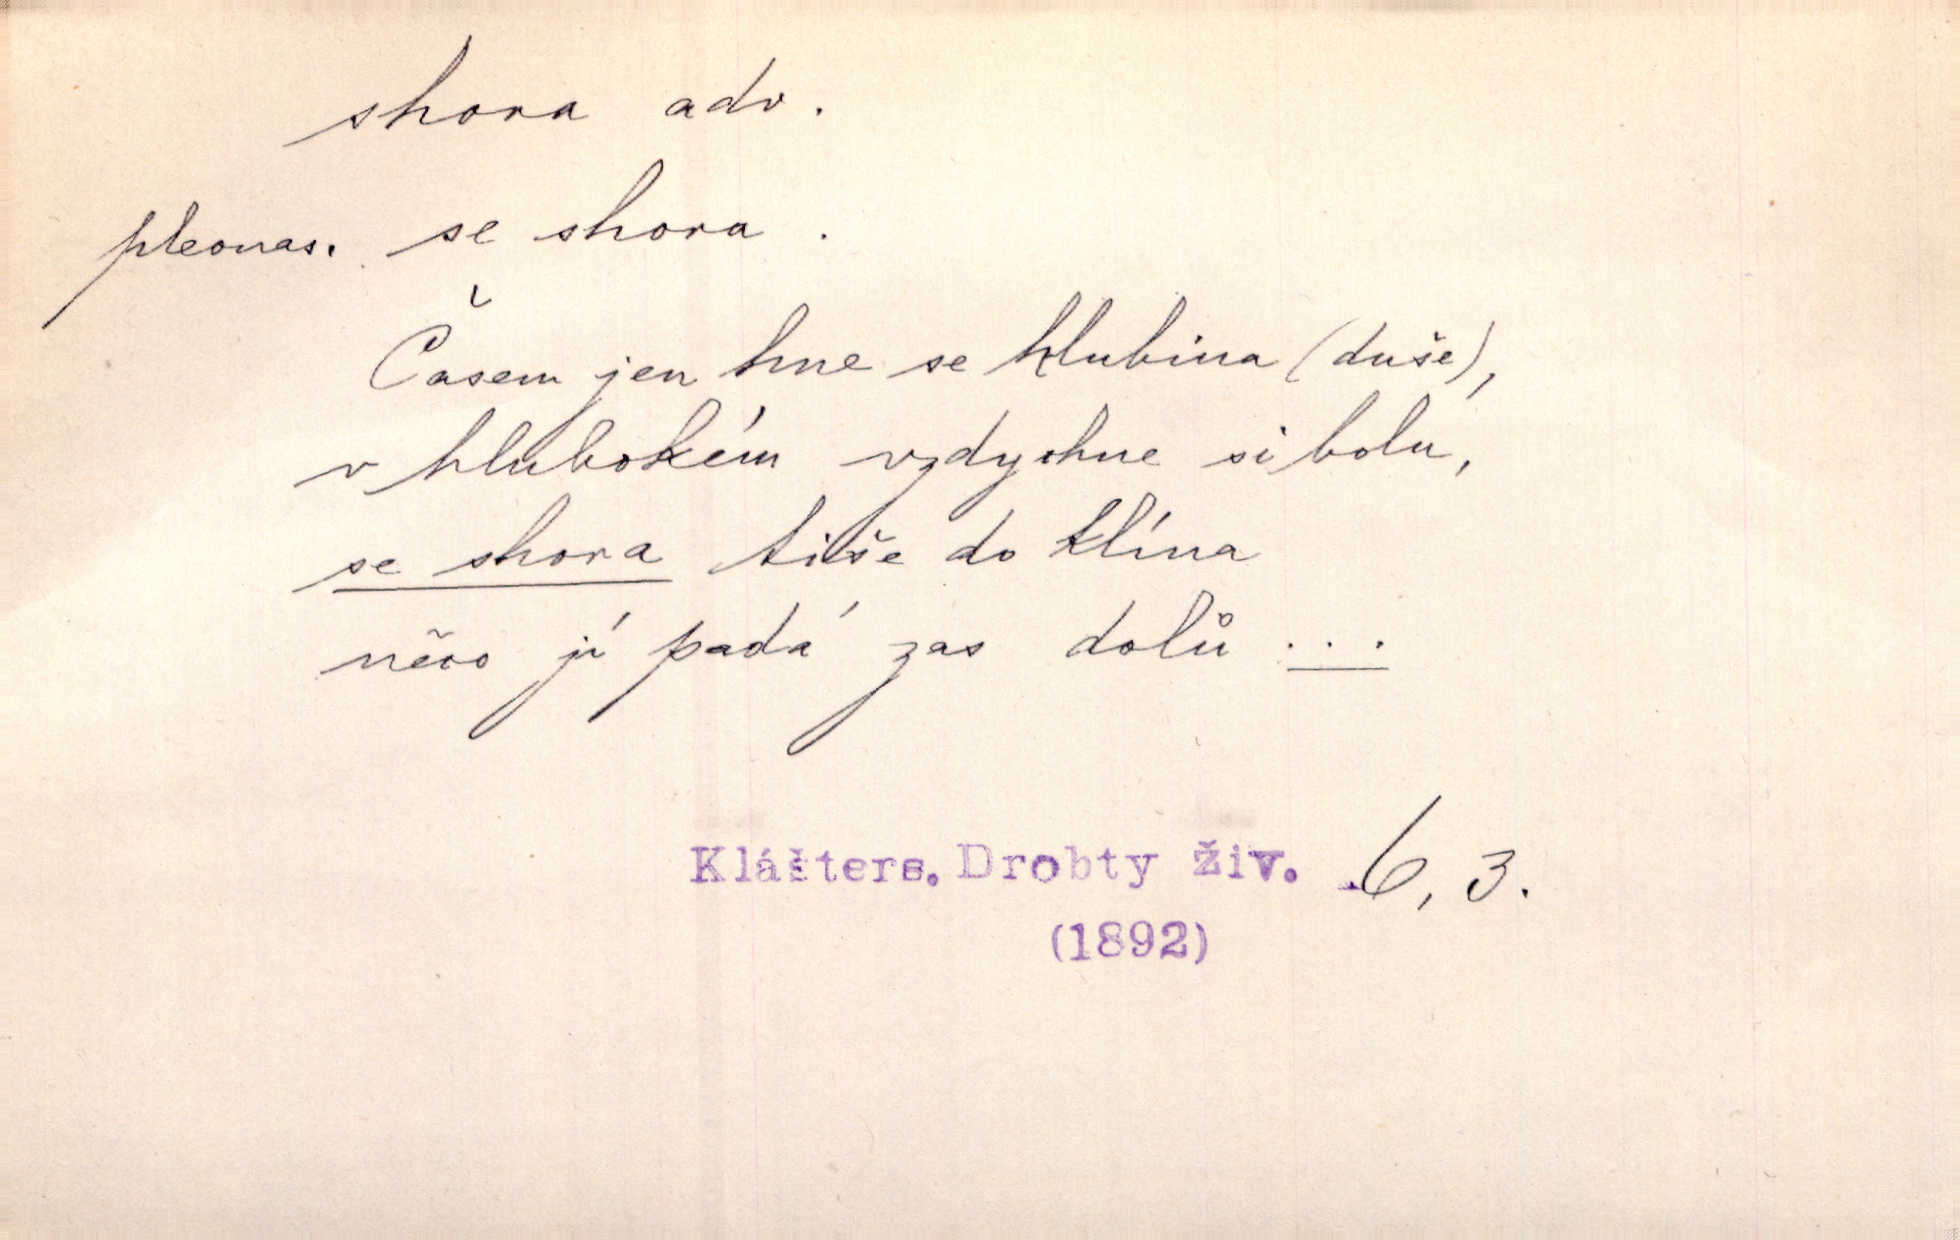 shora adv.
pleonas. se shora.
Časem jen hne se hlubina (duše),
v hlubokém vzdychne si bolu,
se shora tiše do klína
něco jí padá zas dolů ...
Klášters. Drobty živ. 6, 3.
(1892)